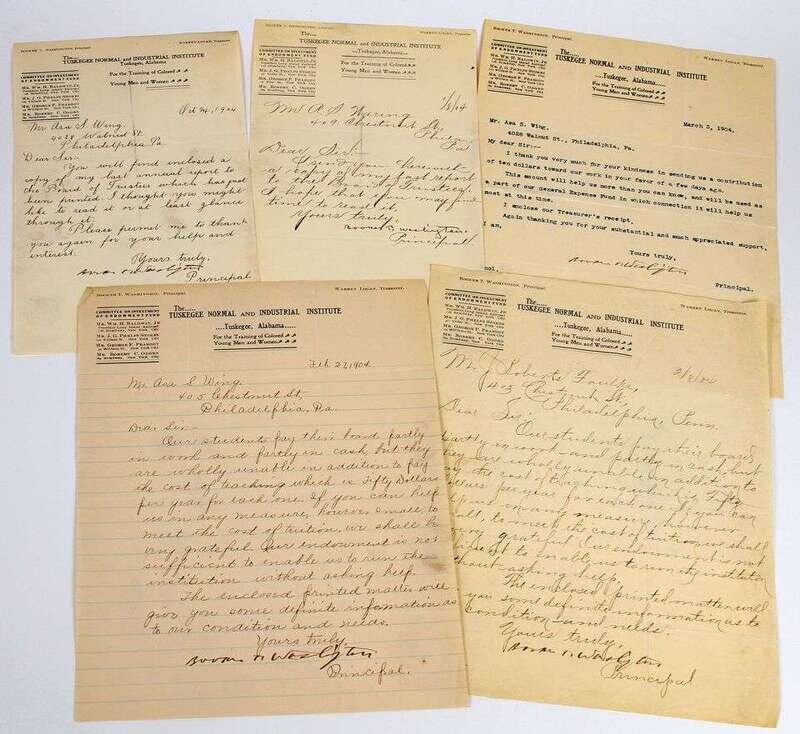 BOOKER T. WASHINGTON, PRINCIPAL
WARREN LOGAN, TREASURER
The.....
TUSKEGEE NORMAL AND INDUSTRIAL INSTITUTE
Tuskegee, Alabama
COMMITTEE ON INVESTMENT
OF ENDOWMENT FUND
MR. WM. H. BALDWIN, JR.
MR. J. G. PHELPS STOKES
MR. GEORGE F. PEABODY
MR. ROBERT C. OGDEN
For the Training of Colored
Young Men and Women
1904
Mr Asa S. Wing
Walnut St.
Philadelphia Pa
Dear Sir:-
You will find enclosed a
copy of my last annual report to
the Board of Trustees which has just
been printed. I thought you might
like to read it or at least glance
through it.
Please permit me to thank
you again for your help and
interest.
Yours truly,
Booker T. Washington
Principal
BOOKER T. WASHINGTON, PRINCIPAL
WARREN LOGAN, TREASURER
The.....
TUSKEGEE NORMAL AND INDUSTRIAL INSTITUTE
Tuskegee, Alabama
COMMITTEE ON INVESTMENT
OF ENDOWMENT FUND
For the Training of Colored
Young Men and Women
Mr A S Wing
409 Chestnut St
Phila
Pa
Dear Sir:-
I send you herewith
a copy of my last report
to the Board of Trustees.
I hope that you may find
time to read it.
Yours truly,
Booker T. Washington
Principal
BOOKER T. WASHINGTON, PRINCIPAL
WARREN LOGAN, TREASURER
The....
TUSKEGEE NORMAL AND INDUSTRIAL INSTITUTE
....Tuskegee, Alabama....
COMMITTEE ON INVESTMENT
OF ENDOWMENT FUND
MR. WM. H. BALDWIN, JR.
MR. J. G. PHELPS STOKES
MR. GEORGE F. PEABODY
MR. ROBERT C. OGDEN
For the Training of Colored
Young Men and Women
March 3, 1904.
Mr. Asa S. Wing,
4028 Walnut St., Philadelphia, Pa.
My dear Sir:-
I thank you very much for your kindness in sending us a contribution
of ten dollars toward our work in your favor of a few days ago.
This amount will help us more than you can know, and will be used as
a part of our General Expense Fund in which connection it will help us
most at this time.
I enclose our Treasurer's receipt.
Again thanking you for your substantial and much appreciated support,
I am,
Yours truly,
Booker T. Washington
Principal.
BOOKER T. WASHINGTON, PRINCIPAL
WARREN LOGAN, TREASURER
The.....
TUSKEGEE NORMAL AND INDUSTRIAL INSTITUTE
....Tuskegee, Alabama....
COMMITTEE ON INVESTMENT
OF ENDOWMENT FUND
MR. WM. H. BALDWIN, JR.
MR. J. G. PHELPS STOKES
MR. GEORGE F. PEABODY
MR. ROBERT C. OGDEN
For the Training of Colored
Young Men and Women
Feb 27, 1904
Mr Asa S Wing
405 Chestnut St,
Philadelphia, Pa.
Dear Sir:-
Our students pay their board partly
in work and partly in cash, but they
are wholly unable in addition to pay
the cost of teaching which is Fifty Dollars
per year for each one. If you can help
us in any measure, however small, to
meet the cost of tuition, we shall be
very grateful. Our endowment is not
sufficient to enable us to run the
institution without asking help.
The enclosed printed matter will
give you some definite information as
to our condition and needs.
Yours truly,
Booker T. Washington
Principal.
BOOKER T. WASHINGTON, PRINCIPAL
WARREN LOGAN, TREASURER
The....
TUSKEGEE NORMAL AND INDUSTRIAL INSTITUTE
....Tuskegee, Alabama....
COMMITTEE ON INVESTMENT
OF ENDOWMENT FUND
MR. WM. H. BALDWIN, JR.
MR. J. G. PHELPS STOKES
MR. GEORGE F. PEABODY
MR. ROBERT C. OGDEN
For the Training of Colored
Young Men and Women
Mr. J Roberts Foulke,
Chestnut St,
Philadelphia, Penn.
Dear Sir:
Our students pay their board
partly in work and partly in cash, but
they are wholly unable in addition to
pay the cost of teaching which is Fifty
Dollars per year for each one. If you can
help us in any measure, however
small, to meet the cost of tuition, we shall
very grateful. Our endowment is not
sufficient to enable us to run the institution
without asking help.
The enclosed printed matter will
you some definite information as to
condition and needs.
Yours truly,
Booker T. Washington
Principal